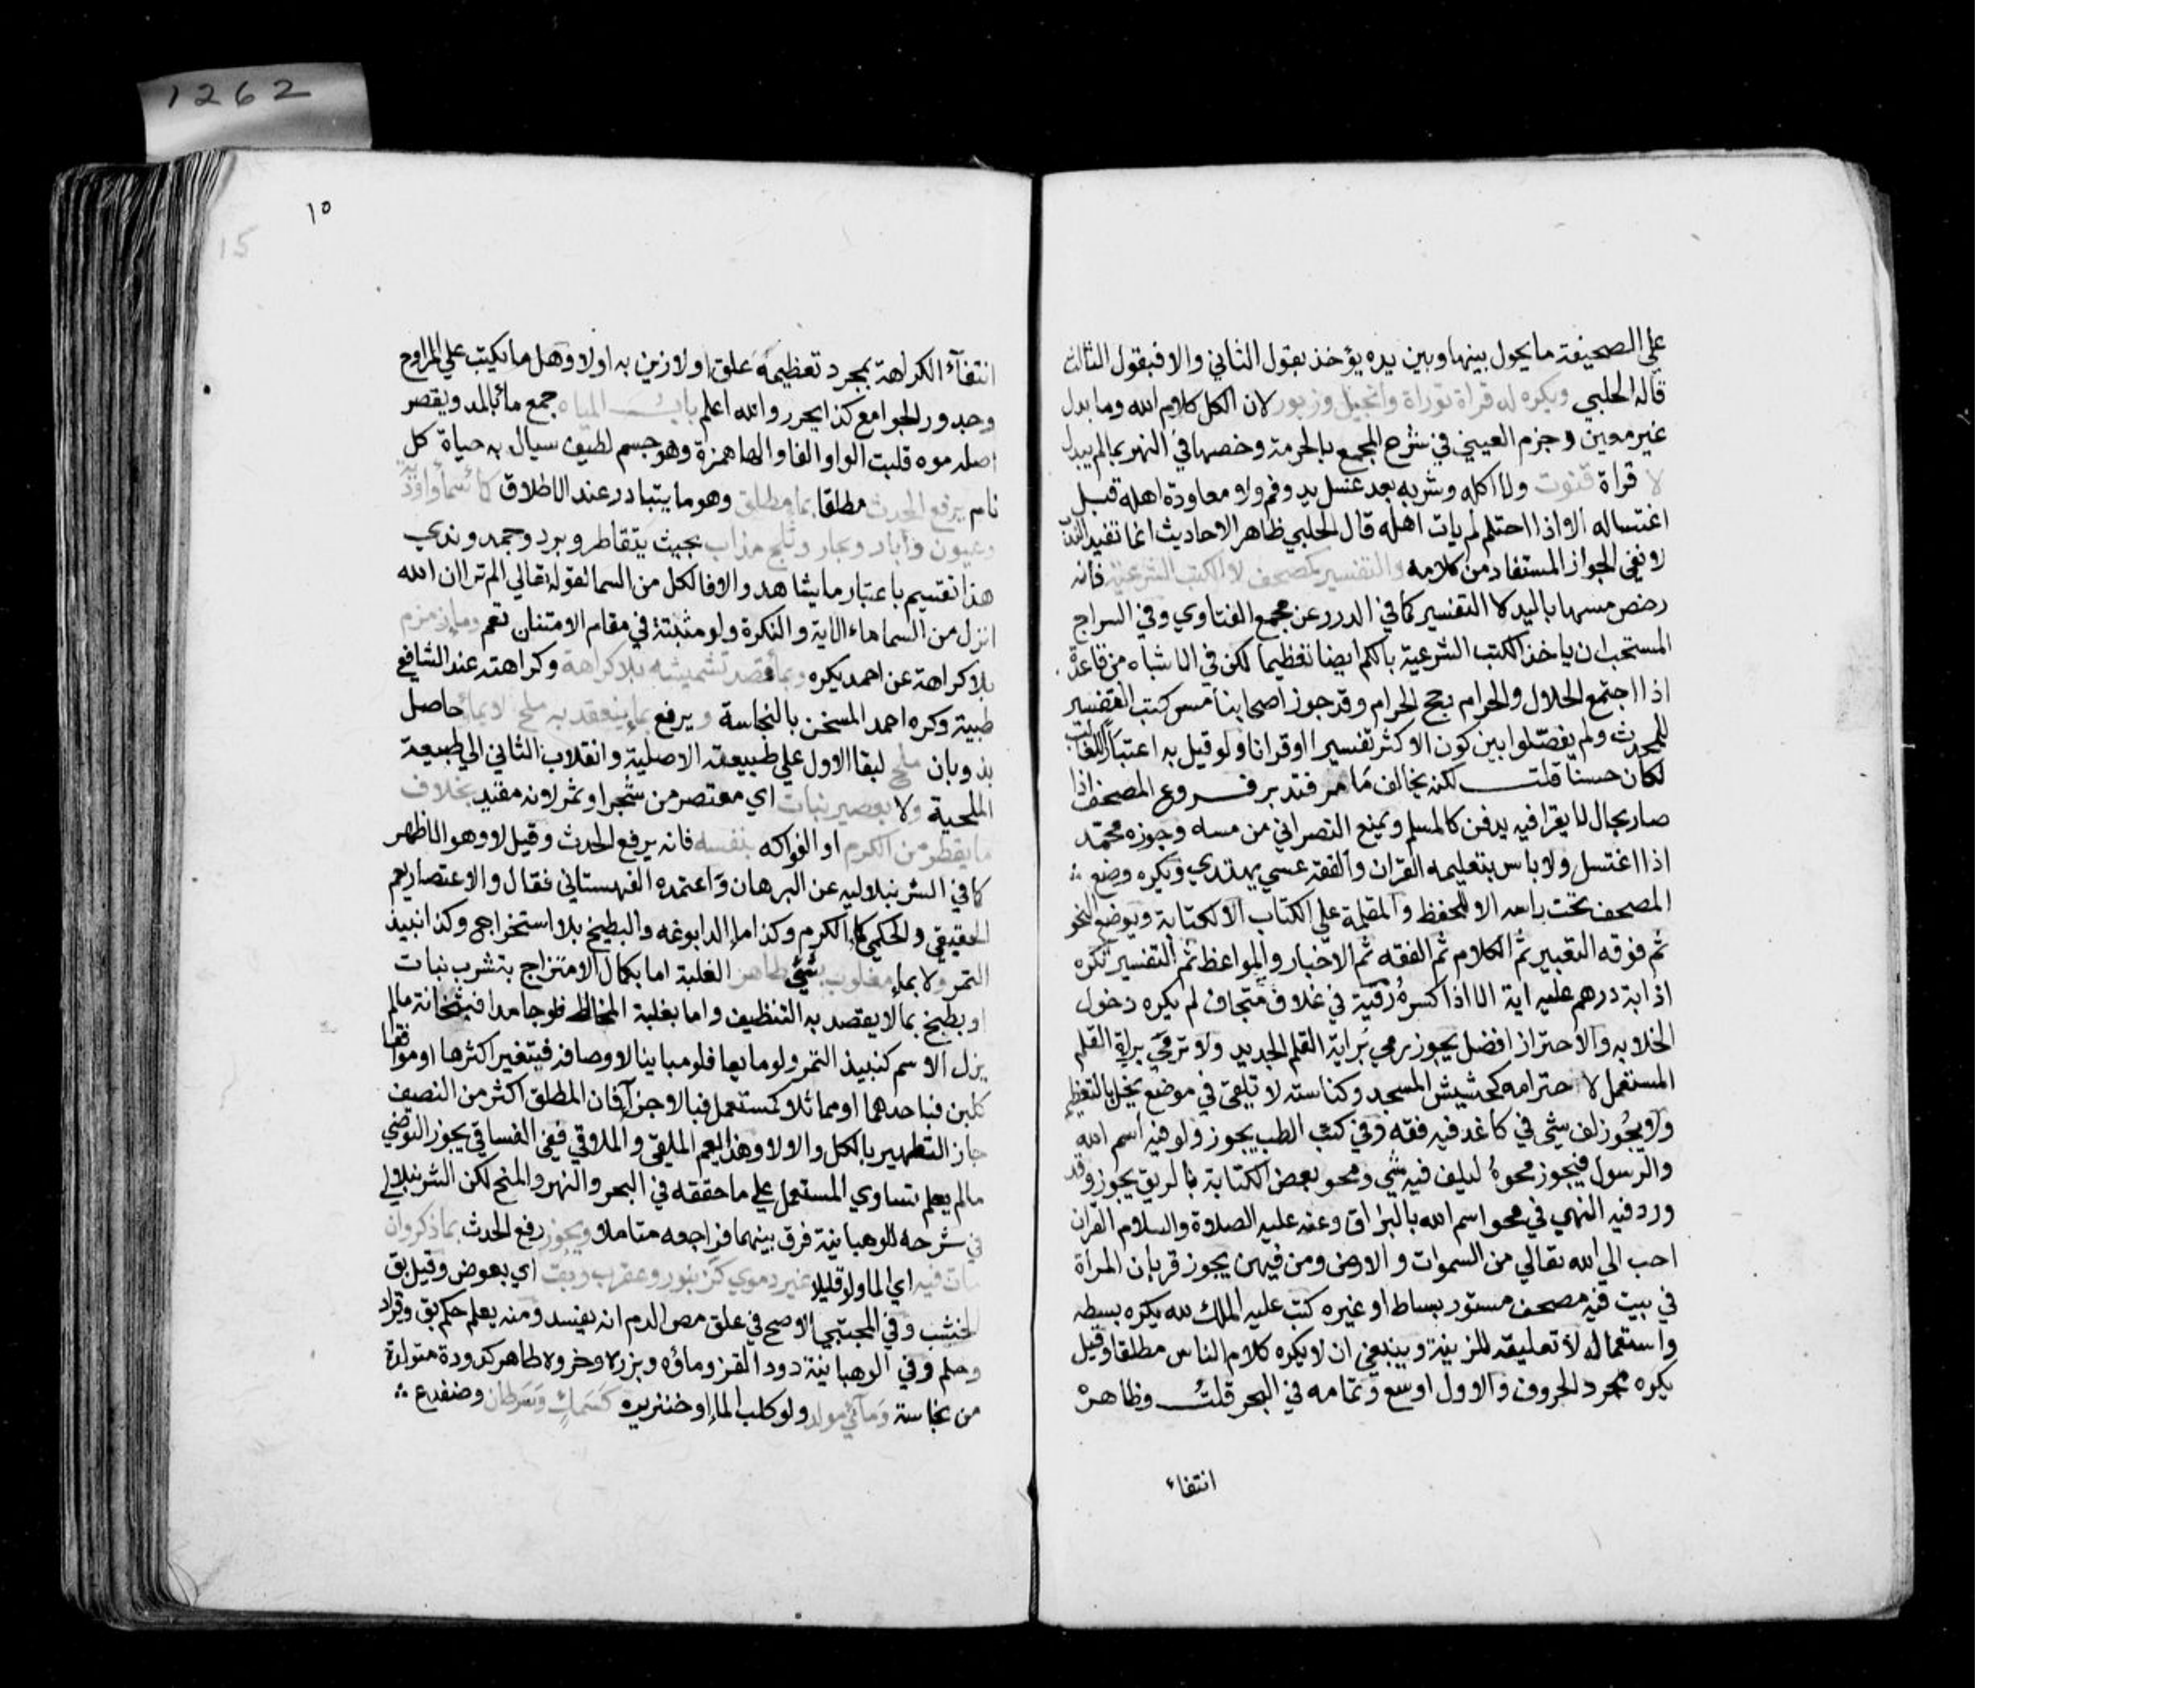 على الصحيفة ما يحول بينها وبين يده يؤخذ بقول الثاني والا فبقول الثالث
قاله الحلبي ويكره له قراة توراة وانجيل وزبور لان الكل كلام الله وما بدل
غير معين وجزم العيني في شرح المجمع بالحرمة وخصها في النهر بما لم يبدل
لا قراة قنوت ولا اكله وشربه بعد غسل يد وفم ولا معاودة اهله قبل
اغتساله الا اذا احتلم لم يات اهله قال الحلبي ظاهر الاحاديث انما تفيد الندب
لا نفي الجواز المستفاد من كلامه والتفسير كمصحف لا الكتب الشرعية فانه
رخص مسها باليد لا التفسير كما في الدرر عن مجمع الفتاوي وفي السراج
المستحب ان ياخذ الكتب الشرعية بالكم ايضا تعظيما لكن في الاشباه من قاعدة
اذا اجتمع الحلال والحرام رجح الحرام وقد جوز اصحابنا مس كتب التفسير
للمحدث ولم يفصلوا بين كون الاكثر تفسيرا او قرانا ولو قيل به اعتبارا للغالب
لكان حسنا قلت لكنه يخالف ما مر فتدبر فروع المصحف اذا
صار بحال لا يقرا فيه يدفن كالمسلم ويمنع النصراني من مسه وجوزه محمد
اذا اغتسل ولا باس بتعليمه القران والفقه عسي يهتدي ويكره وضع
المصحف تحت راسه الا للحفظ والمقلمة على الكتاب الا لكتابة ويوضع النحو
ثم فوقه التعبير ثم الكلام ثم الفقه ثم الاخبار والمواعظ ثم التفسير تكره
اذابة درهم عليه اية الا اذا كسره رقية في غلاف متجاف لم يكره دخول
الخلا به والاحتراز افضل يجوز رمي براية القلم الجديد ولا ترمي براية القلم
المستعمل لاحترامه كحشيش المسجد وكناسته لا تلقى في موضع يخل بالتعظيم
ولا يجوز لف شي في كاغد فيه فقه وفي كتب الطب يجوز ولو فيه اسم الله
والرسول فيجوز محوه ليلف فيه شي ومحو بعض الكتابة بالريق يجوز وقد
ورد فيه النهي في محو اسم الله بالبزاق وعنه عليه الصلاة والسلام القران
احب الي الله تعالي من السموات والارض ومن فيهن يجوز قربان المراة
في بيت فيه مصحف مستور بساط او غيره كتب عليه الملك لله يكره بسطه
واستعماله لا تعليقه للزينة وينبغي ان لا يكره كلام الناس مطلقا وقيل
يكره مجرد الحروف والاول اوسع وتمامه في البحر قلت وظاهره
انتفاء
١٥
15
انتفآء الكراهة بمجرد تعظيمه علق اولا زين به اولا وهل ما يكتب علي المراوح
وجدور الجوامع كذا يحرر والله اعلم باب المياه جمع ماء بالمد ويقصر
اصله موه قلبت الواو الفا والها همزة وهو جسم لطيف سيال به حياة كل
نام يرفع الحدث مطلقا بما مطلق وهو ما يتبادر عند الاطلاق كما سما واودية
وعيون وابار وبحار وثلج مذاب بحيث يتقاطر وبرد وجمد وندي
هذا تقسيم باعتبار ما يشاهد والا فالكل من السما لقوله تعالي الم تر ان الله
انزل من السما ماء الاية والنكرة ولو مثبتة في مقام الامتنان تعم وما زمزم
بلا كراهة عن احمد يكره وبما قصد تشميسه بلا كراهة وكراهته عند الشافعي
طبية وكره احمد المسخن بالنجاسة ويرفع بما ينعقد به ملح لا بماء حاصل
بذوبان ملح لبقا الاول علي طبيعته الاصلية وانقلاب الثاني الي طبيعة
الملحية ولا بعصير نبات اي معتصر من شجر او ثمر لانه مقيد بخلاف
ما يقطر من الكرم او الفواكه بنفسه فانه يرفع الحدث وقيل لا وهو الاظهر
كما في الشرنبلاليه عن البرهان واعتمده القهستاني فقال والاعتصار يعم
الحقيقي والحكمي كماء الكرم وكذا ماء الدابوغه والبطيخ بلا استخراج وكذا نبيذ
التمر ولا بماء مغلوب بشئ طاهر الغلبة اما بكمال الامتزاج بتشرب نبات
او بطبخ بما لا يقصد به التنظيف واما بغلبة المخالط فلو جامدا فبثخانة ما لم
يزل الاسم كنبيذ التمر ولو مايعا فلو مباينا لاوصافه فبتغير اكثرها او موافقا
كلبن فباحدهما او مماثلا كمستعمل فبالاجزآ فان المطلق اكثر من النصف
جاز التطهير بالكل والا لا وهذا يعم الملقي والملاقي ففي الفساقي يجوز التوضي
ما لم يعلم تساوي المستعمل علي ما حققه في البحر والنهر والمنح لكن الشرنبلالي
في شرحه للوهبانية فرق بينهما فراجعه متاملا ويجوز رفع الحدث بما ذكر وان
مات فيه اي الما ولو قليلا غير دموي كزنبور وعقرب وبق اي بعوض وقيل بق
الخشب وفي المجتبي الاصح في علق مص الدم انه يفسد ومنه يعلم حكم بق وقراد
وحلم وفي الوهبانية دود القز وماؤه وبزره وخرؤه طاهر كدودة متولدة
من نجاسة ومائي مولد ولو كلب الماء او خنزيره كسمك وسرطان وضفدع
1262